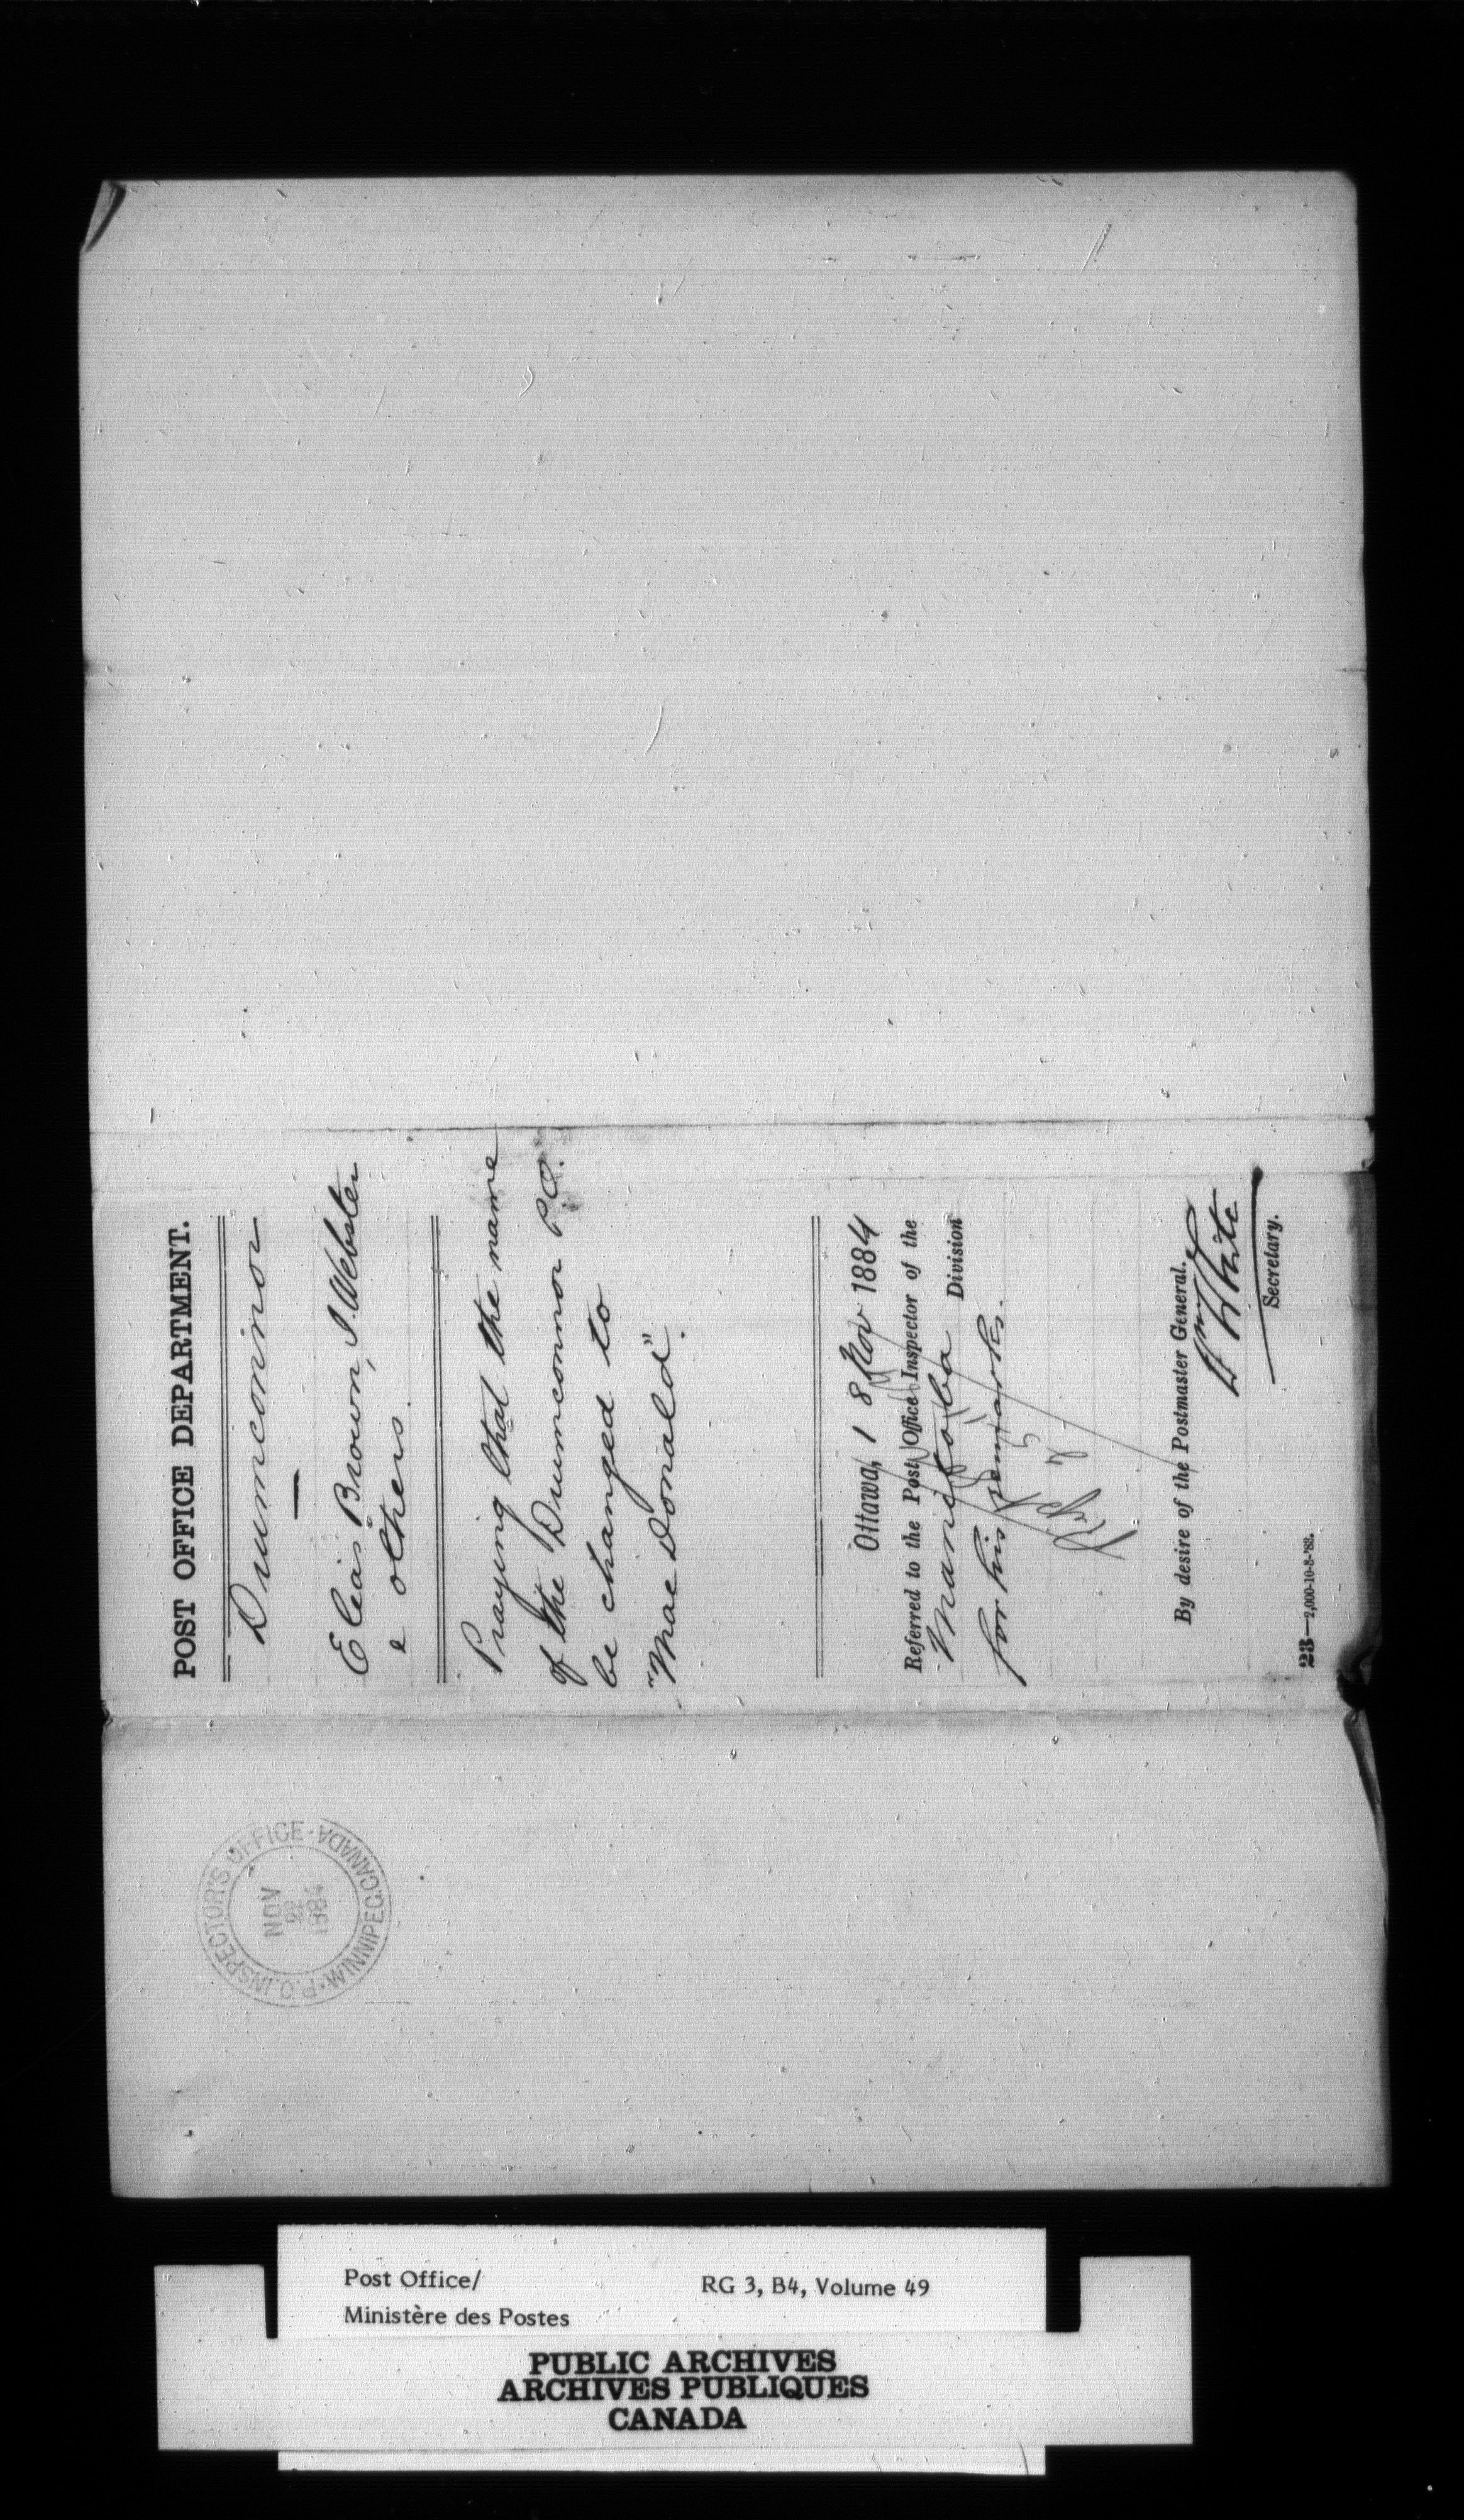 POST OFFICE DEPARTMENT.
Drumconnor
—
Elias Brown, I. Webster
& others.
Praying that the name
of the Drumconnor P.O.
be changed to
"Mac Donald".
Ottawa, 18 Nov 1884
Referred to the Post Office Inspector of the
Manitoba Division
for his remarks.
By desire of the Postmaster General.
Wm White
Secretary.
23—2,000-10-8-'83.
P.O. INSPECTOR'S OFFICE · WINNIPEG, CANADA ·
NOV
22
1884
Post Office/
Ministère des Postes
RG 3, B4, Volume 49
PUBLIC ARCHIVES
ARCHIVES PUBLIQUES
CANADA